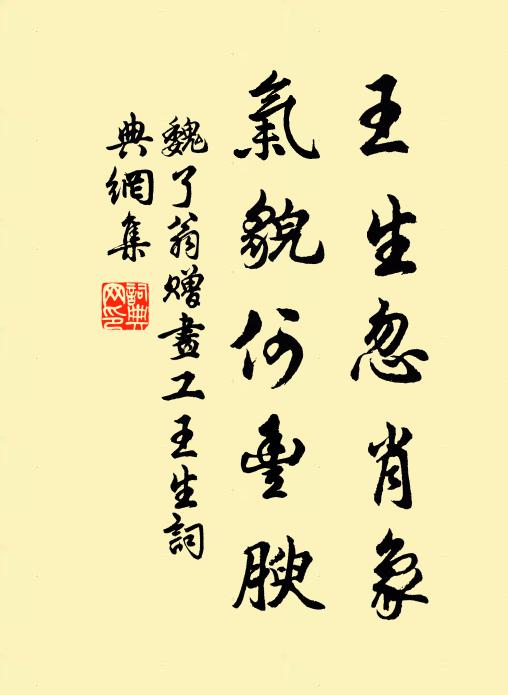 王生忽肖象
氣貌何豐腴
魏了翁贈畫工王生詞
典網集
詞典網印